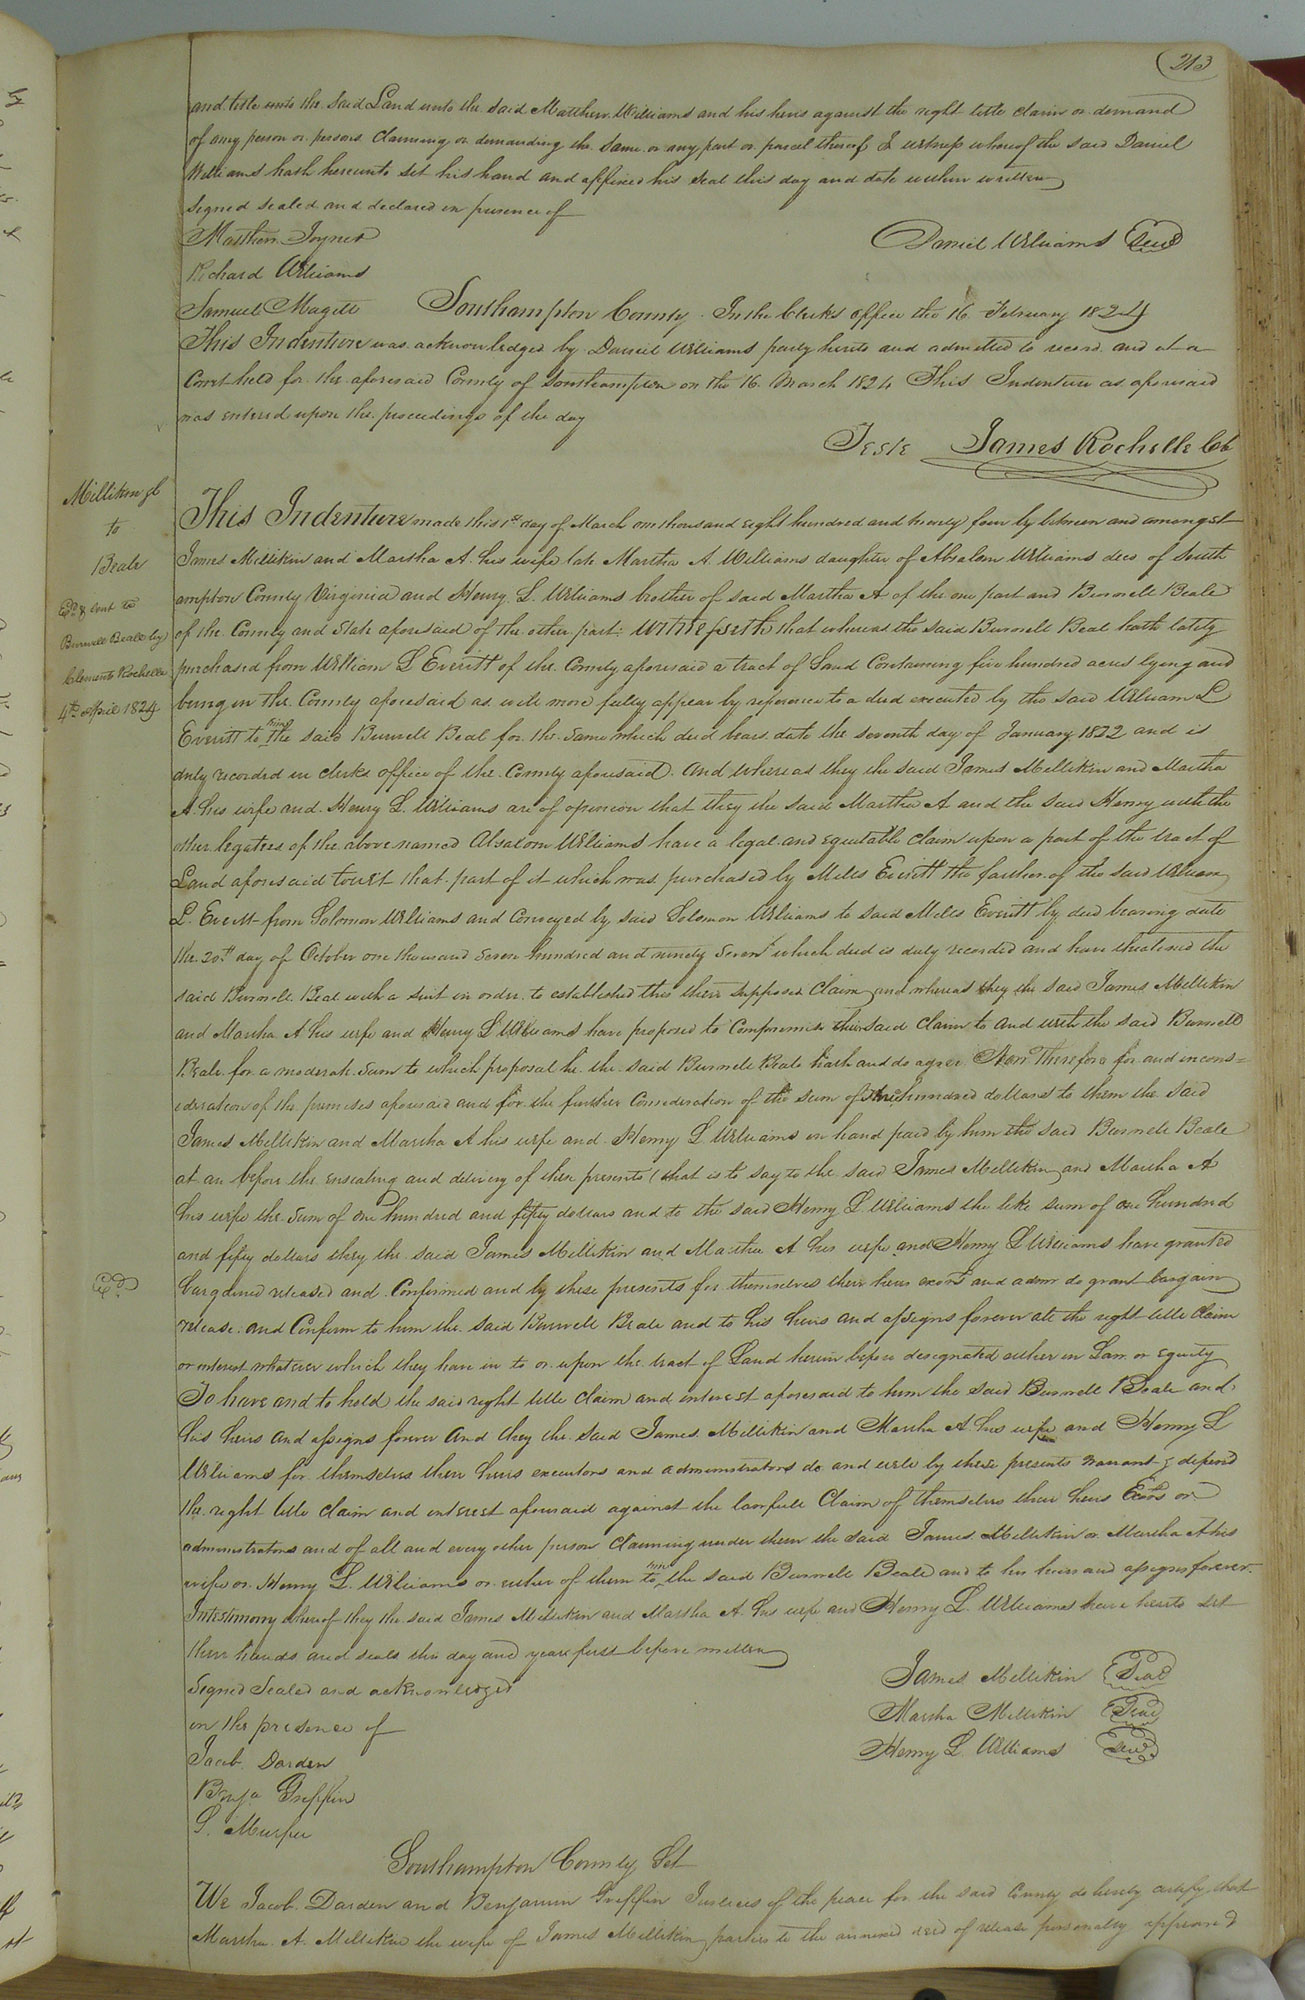 213
and title unto the said Land unto the said Matthew Williams and his heirs against the right title claim or demand
of any person or persons claiming or demanding the same or any part or parcel thereof In witness whereof the said Daniel
Williams hath hereunto set his hand and affixed his seal this day and date within written
Signed sealed and declared in presence of
Matthew Joyner
Daniel Williams Seal
Richard Williams
Samuel Magett Southampton County. In the Clerks office the 16 February 1824
This Indenture was acknowledged by Daniel Williams party hereto and admitted to record and at a
Court held for the aforesaid County of Southampton on the 16 March 1824 This Indenture as aforesaid
was entered upon the proceedings of the day
Teste James Rochelle Clk
Millikin &c
to
Beale
Ex.d & sent to
Burwell Beale by
Clements Rochelle
4th April 1824
This Indenture made this 1st day of March one thousand eight hundred and twenty four by between and amongst
James Millikin and Martha A. his wife late Martha A. Williams daughter of Absalom Williams decd of South
ampton County Virginia and Henry L. Williams brother of said Martha A of the one part and Burwell Beale
of the County and State aforesaid of the other part: Witnesseth that whereas the said Burwell Beal hath lately
purchased from William L Everitt of the County aforesaid a tract of Land Containing five hundred acres lying and
being in the County aforesaid as will more fully appear by reference to a deed executed by the said William L
Everitt to him the said Burwell Beal for the same which deed bears date the seventh day of January 1822 and is
duly recorded in clerks office of the County aforesaid. And whereas they the said James Millikin and Martha
A his wife and Henry L Williams are of opinion that they the said Martha A and the said Henry with the
other legatees of the above named Absalom Williams have a legal and equitable claim upon a part of the tract of
Land aforesaid towit that part of it which was purchased by Miles Everitt the father of the said William
L. Everitt from Solomon Williams and Conveyed by said Solomon Williams to said Miles Everitt by deed bearing date
the 20th day of October one thousand seven hundred and ninety seven which deed is duly recorded and have threatened the
said Burwell Beal with a suit in order to established this their supposed Claim and whereas they the said James Millikin
and Martha A his wife and Henry L Williams have proposed to Compromise their said claim to and with the said Burwell
Beale for a moderate sum to which proposal he the said Burwell Beale hath and do agree. Now Therefore for and in cons=
ideration of the premises aforesaid and for the further Consideration of the sum of three hundred dollars to them the said
James Millikin and Martha A his wife and Henry L Williams in hand paid by him the said Burwell Beale
at an before the ensealing and delivery of these presents (that is to say to the said James Millikin and Martha A
his wife the sum of one hundred and fifty dollars and to the said Henry L Williams the like sum of one hundred
and fifty dollars they the said James Millikin and Martha A his wife and Henry L Williams have granted
Ex.d
bargained released and Confirmed and by these presents for themselves their heirs exors and admr do grant bargain
release and Confirm to him the said Burwell Beale and to his heirs and assigns forever all the right title claim
or interest whatever which they have in to or upon the tract of Land herein before designated either in Law or equity
To have and to hold the said right title claim and interest aforesaid to him the said Burwell Beale and
his heirs and assigns forever And they the said James Millikin and Martha A his wife and Henry L
Williams for themselves their heirs executors and administrators do and will by these presents warrant & defend
the right title claim and interest aforesaid against the lawfull Claim of themselves their heirs Exors or
administrators and of all and every other person Claiming under them the said James Millikin or Martha A his
wife or Henry L Williams or either of them to him the said Burwell Beale and to his heirs and assigns forever.
In testimony whereof they the said James Millikin and Martha A. his wife and Henry L. Williams have hereto set
their hands and seals the day and year first before written
Signed Sealed and acknowledged
in the presence of
James Millikin Seal
Martha Millikin Seal
Henry L. Williams Seal
Jacob. Darden
Benja Griffin
Southampton County Sct
We Jacob. Darden and Benjamin Griffin Justices of the peace for the said County do hereby certify that
Martha. A. Millikin the wife of James Millikin parties to the annexed deed of release personally appeared